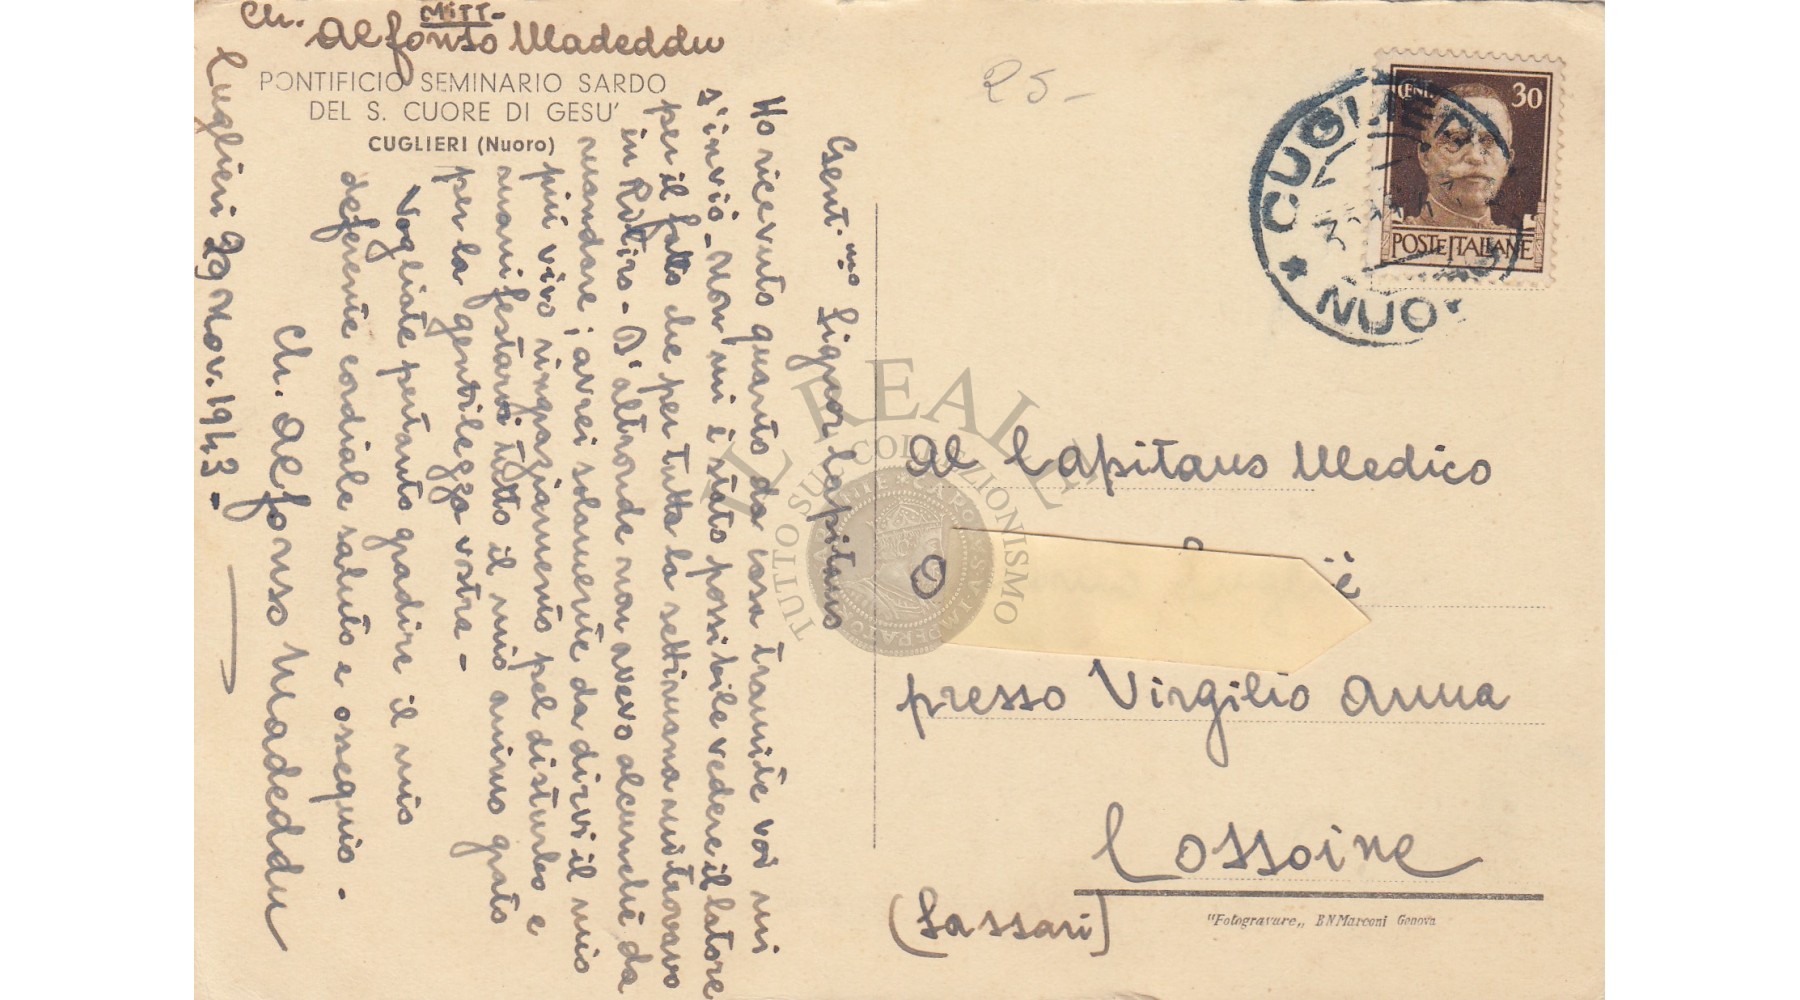 Mitt-
Ch. Alfonso Madeddu
PONTIFICIO SEMINARIO SARDO
DEL S. CUORE DI GESU'
CUGLIERI (Nuoro)
Gent.mo Signor Capitano
Ho ricevuto quanto da casa tramite voi mi
s'inviò - Non mi è stato possibile vedere il latore
per il fatto che per tutta la settimana mi trovavo
in Ritiro - D'altronde non avevo alcunchè da
mandare; avrei solamente da dirvi il mio
più vivo ringraziamento pel disturbo e
manifestarvi tutto il mio animo grato
per la gentilezza vostra -
Vogliate pertanto gradire il mio
deferente cordiale saluto e ossequio -
Ch. Alfonso Madeddu
Cuglieri 29 Nov. 1943 -
25-
CENT. 30
POSTE ITALIANE
CUGLIERI
NUORO
Al Capitano Medico
O
presso Virgilio Anna
Cossoine
(Sassari)
"Fotogravure„ B.N. Marconi Genova
IL REALE
TUTTO SUL COLLEZIONISMO